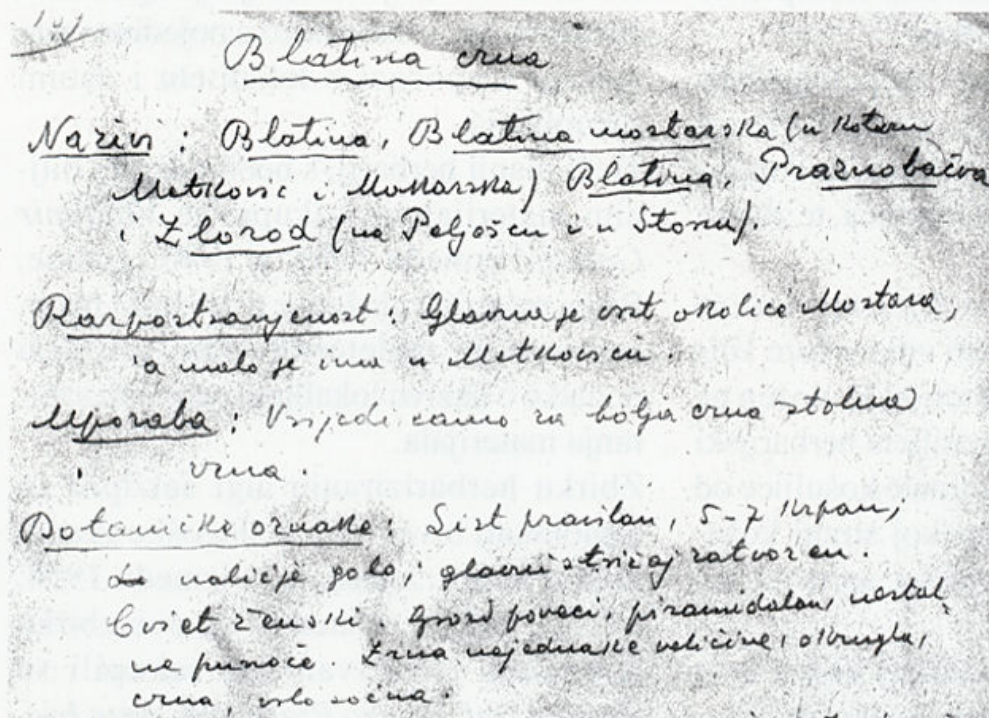 Blatina crna
Nazivi : Blatina, Blatina mostarska (u kotaru
Metković i Makarska) Blatina, Praznobačva
i Zlorod (na Pelješcu i u Stonu).
Rasprostranjenost : Glavna je vrst okolice Mostara,
a malo je ima u Metkoviću.
Uporaba : Vrijedi samo za bolja crna stolna
vina.
Botaničke oznake : List pravilan, 5-7 krpan,
naličje golo, glavni stričaj zatvoren.
Cvijet ženski Grozd poveći, piramidalan, nestal-
ne punoće Zrna nejednake veličine, okrugla,
crna, vrlo sočna.